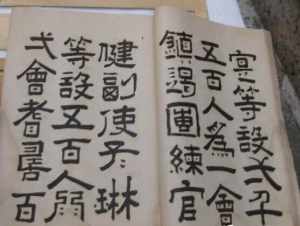 寔等設弌千
五百人爲一會
鎮遏團練官
健副使孫琳
等設五百人爲
弌會耆壽百